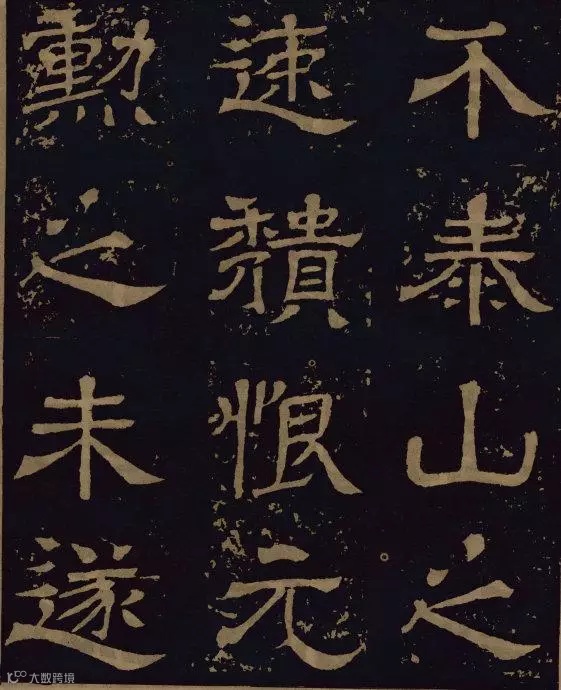 不泰山之
速穨恨元
勳之未遂
大数跨境